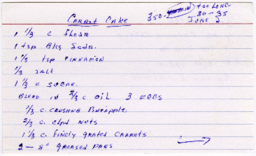 Carrot Cake
350
30 - 35
1 1/3 c flour
1 tsp Bkg Soda
1 1/3 tsp cinnamon
1/3 salt
1 1/3 c sugar
Blend in 2/3 c oil 3 eggs
1/3 c crushed Pineapple
2/3 c chpd nuts
1 1/3 c finely grated carrots
2 - 8" greased pans